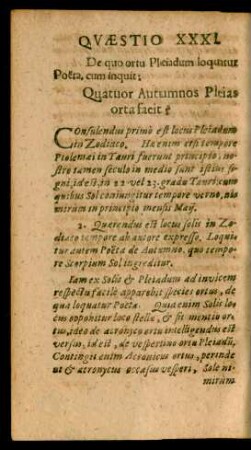 QVÆSTIO XXXI.
De quo ortu Pleiadum loquitur
Poëta, cum inquit:
Quatuor Autumnos Pleias
orta facit?
Consulendus primò est locus Pleiadum
in Zodiaco. Hæ enim etsi tempore
Ptolemæi in Tauri fuerunt principio; no-
stro tamen seculo in medio sunt istius si-
gni, id est, in 22 vel 23. gradu Tauri: cum
quibus Sol coniungitur tempore verno, ni-
mirum in principio mensis Maij.
2. Querendus est locus solis in Zo-
diaco tempore ab autore expresso. Loqui-
tur autem Poëta de Autumno, quo tempo-
re Scorpium Sol ingreditur.
Iam ex Solis & Pleiadum ad invicem
respectu facilè apparebit species ortus, de
qua loquatur Poëta. Quia enim Solis lo-
co opponitur loco stellæ, & fit mentio or-
tus, ideo de acronyco ortu intelligendus est
versus, id est, de vespertino ortu Pleiadū,
Contingit enim Acronicus ortus, perinde
ut & acronyctus occasus vesperi, Sole ni-
mirum